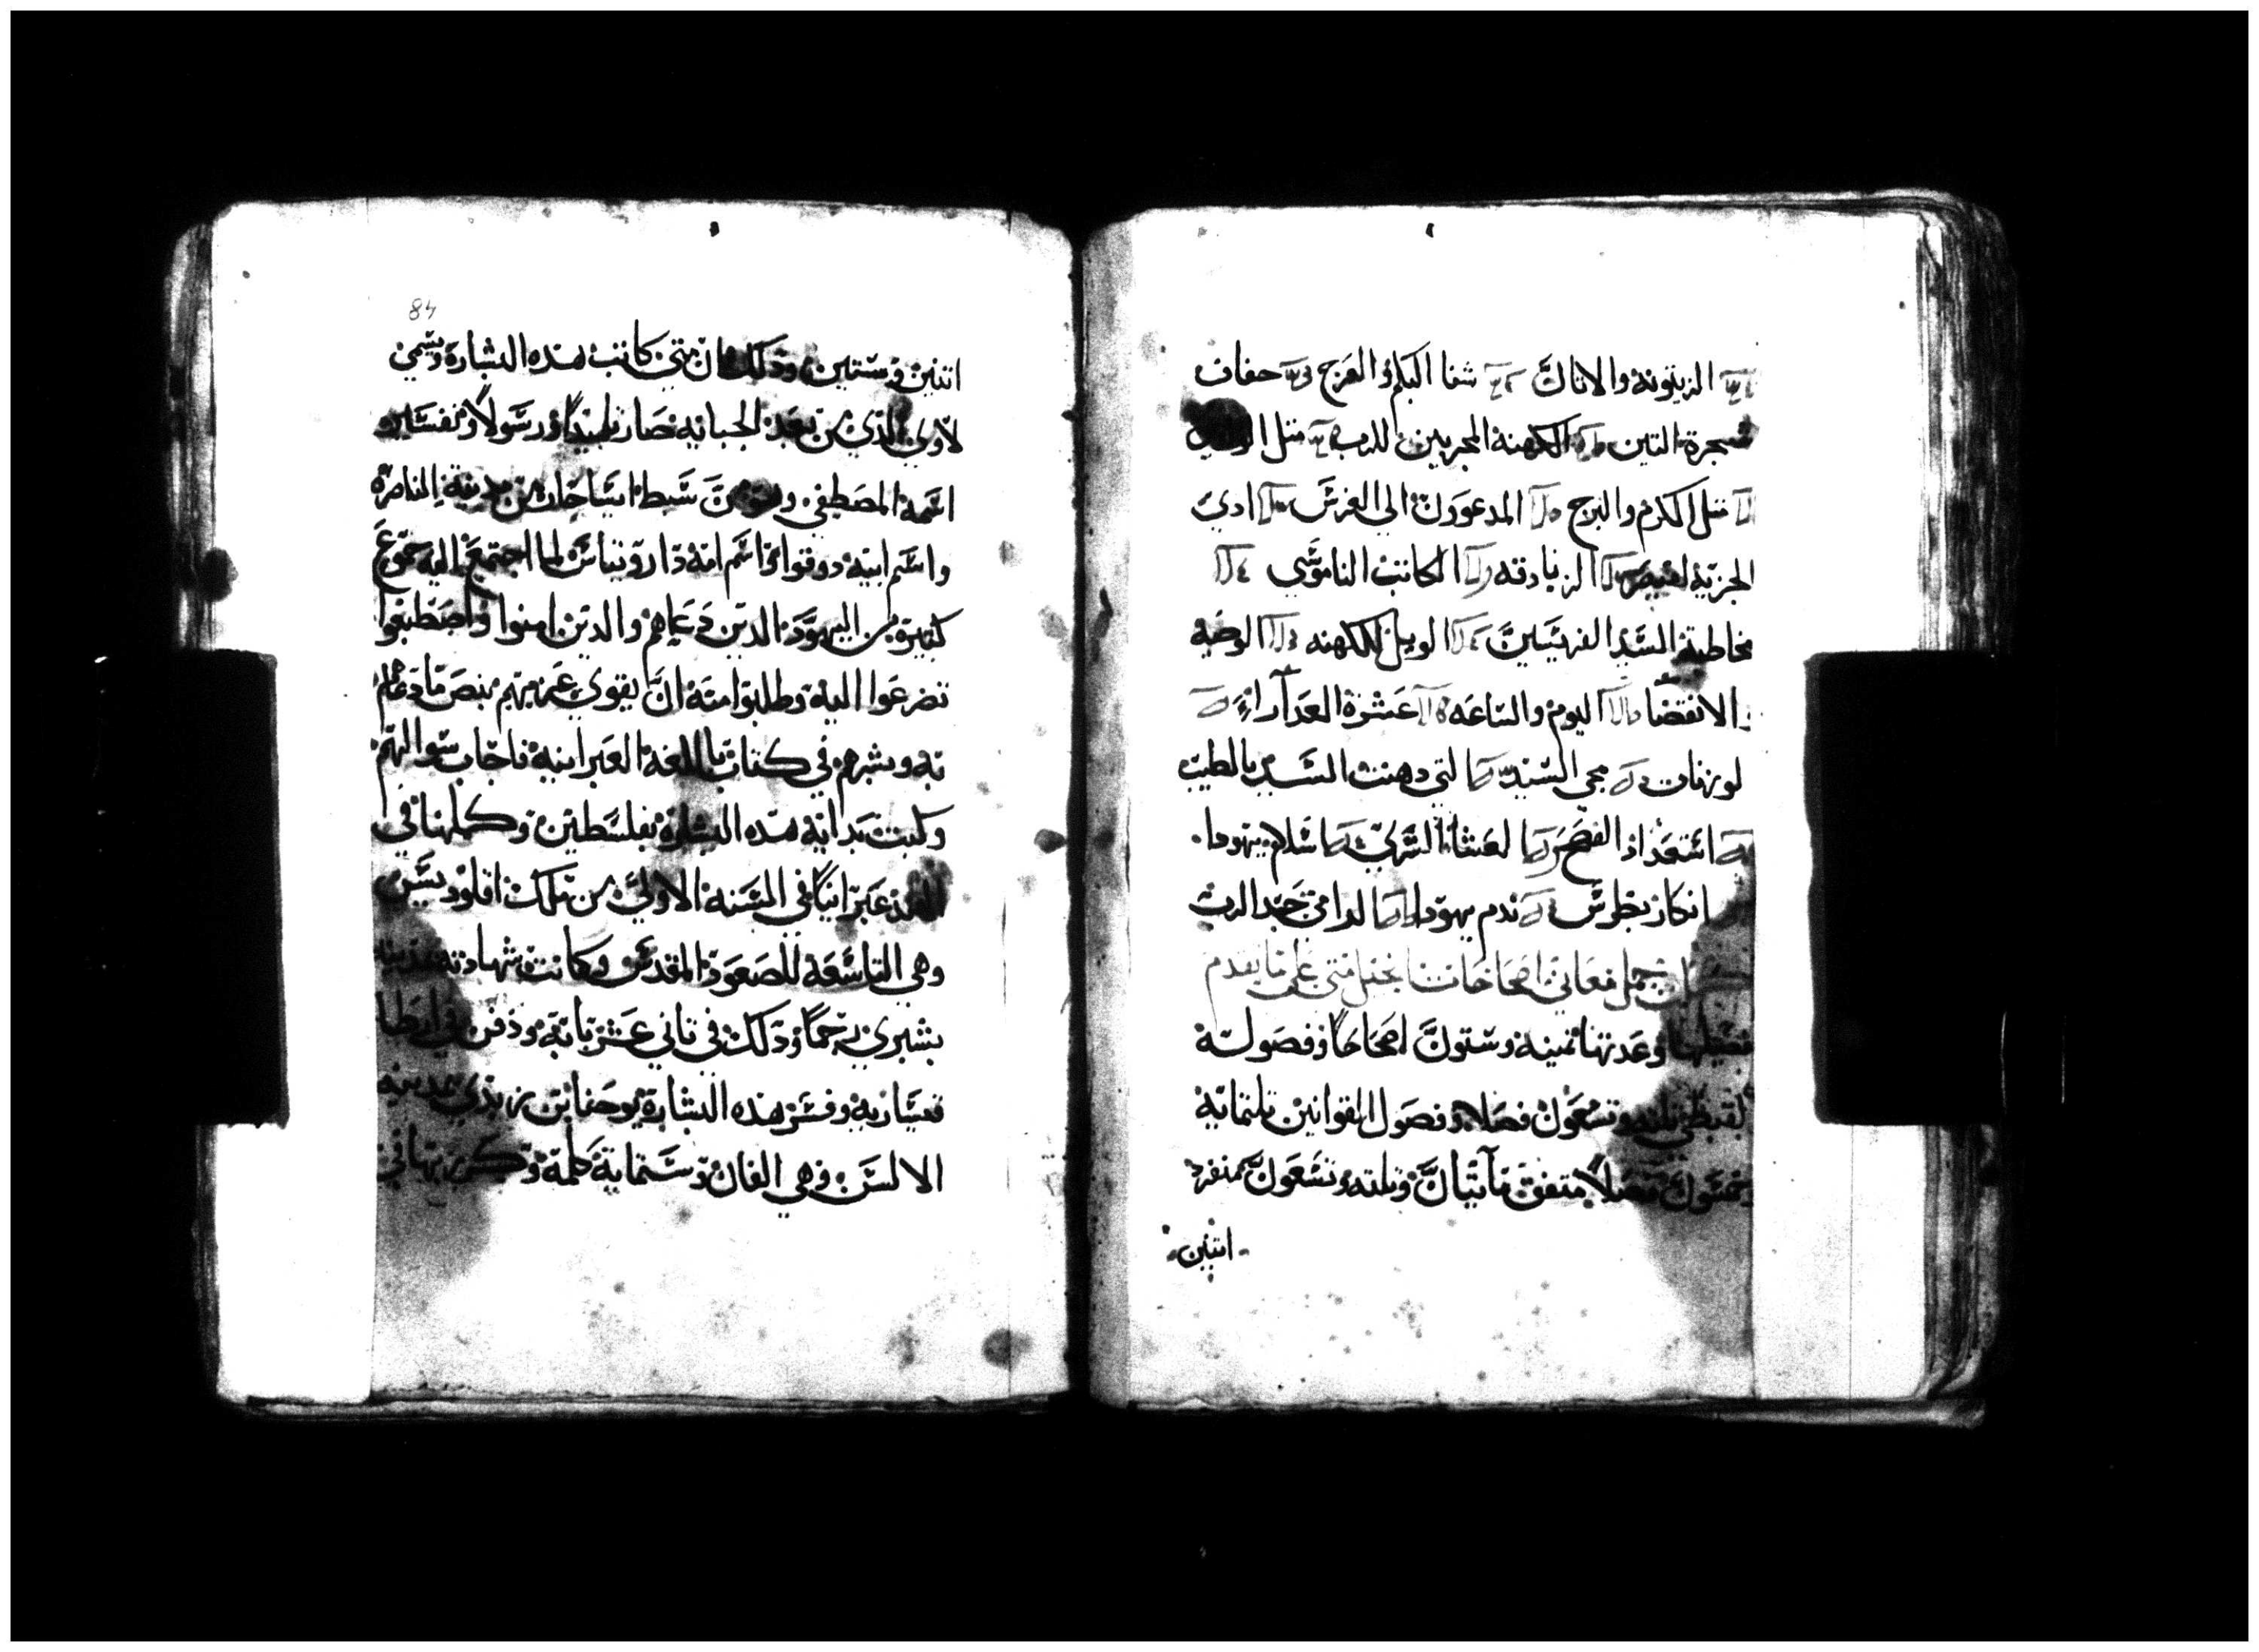 الزيتونه والاتان شفا البكم والعرج حفاف
شجرة التين الكهنة المجربين للرب مثل
مثل الكرم والبرج المدعوون الى العرس ادى
الجزية لقيصر الزنادقه الكاتب الناموسي
مخاطبة السيد الفريسيين الويل للكهنه الوصية
الانقضا اليوم والساعه عشرة العدارا
لوزنات مجي السيد التي دهنت السيد بالطيب
استعداد الفصح لعشا السري اسلام يهودا
انكار بطرس ندم يهودا الرامي جسد الرب
جمل معاني اصحاحات انجيل متى على ما يقدم
تفصيلها وعدتها ثمنية وستون اصحاحا وفصوله
لقبطي تلته وتسعون فصلا وفصول القوانين تلتماية
وخمسون فصلا متفق مآيتان وتلته وتسعون منفرد
اتنين
84
اتنين وستين ودلك ان متى كاتب هده البشارة ويسمى
لاوي الدي من بعد الجبايه صار تلميدا ورسولا وتفسير
اسمه المصطفى وهو من سبط ايساخار من مدينة الناصرة
واسم ابيه دوقوا واسم امه داروتياس لما اجتمع اليه جموع
كتيرة من اليهود الدين دعاهم والدين امنوا واصطبغوا
تضرعوا اليه وطلبوا منه ان يقوي عزميتهم بنص ما دعاهم
به ويبشرهم في كتاب باللغة العبرانية فاجاب سوالهم
وكتبت بداية هده البشارة بفلسطين وكملها في
الهند عبرانيا في السنه الاولى من تملك اقلوديس
وهي التاسعة للصعود المقدس وكانت شهادته بمدينة
بشبري رجما ودلك في تاني عشر بابه ودفن في ارطا
قيسارية وفسر هده البشارة يوحنا بن زبدي بمدينه
الالسن وهي الفان وستماية كلمة وكرز بها في